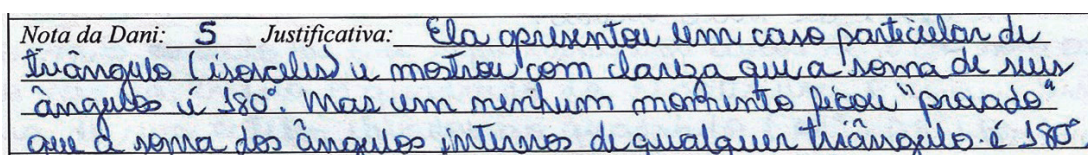 Nota da Dani: 5 Justificativa: Ela apresentou um caso particular de
triângulo (isosceles) e mostrou com clareza que a soma de seus
ângulos é 180°. Mas em nenhum momento ficou "provado"
que a soma dos ângulos internos de qualquer triângulo é 180°